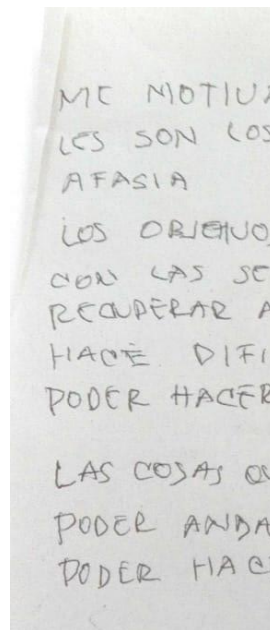 ME MOTIVA
LES SON LOS
AFASIA
LOS OBJETIVO
CON LAS SE
RECUPERAR A
HACE DIFI
PODER HACER
LAS COSAS QU
PODER ANDA
PODER HAC